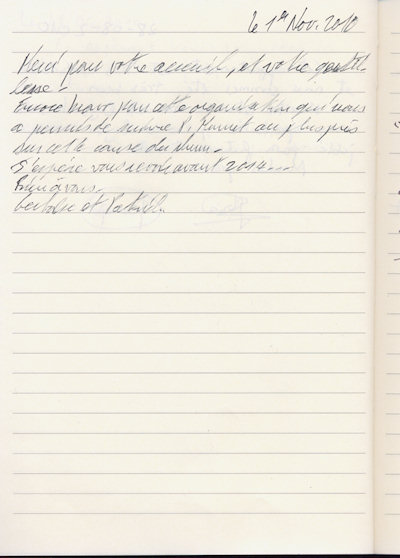 le 1er Nov. 2010
Merci pour votre accueil, et votre gentil-
lesse -
Encore bravo pour cette organisation qui nous
a permis de suivre P. au plus près
sur cette course du rhum -
J'espère vous revoir avant 2014 ---
Bien à vous -
et Patrick